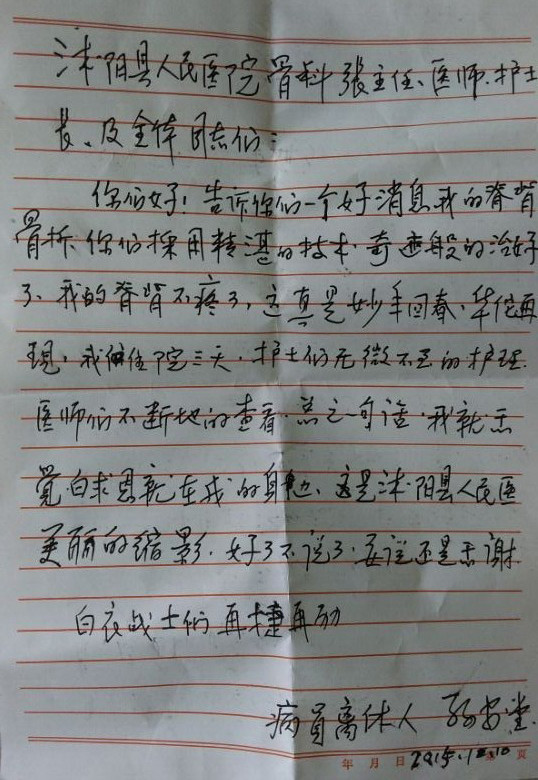 沭阳县人民医院骨科張主任、医师.护士
长、及全体同志们:
你们好!告诉你们一个好消息我的脊背
骨折、你们採用精湛的技术.奇迹般的治好
了、我的脊背不疼了,这真是妙手回春,华佗再
现,我住院三天,护士们无微不至的护理.
医师们不断地的查看.总之一句话.我就感
觉白求恩就在我的身边、这是沭阳县人民医
美丽的缩影.好了不说了.要说还是感谢.
白衣战士们再捷再励
病員离休人
年月日2015.12.10 页